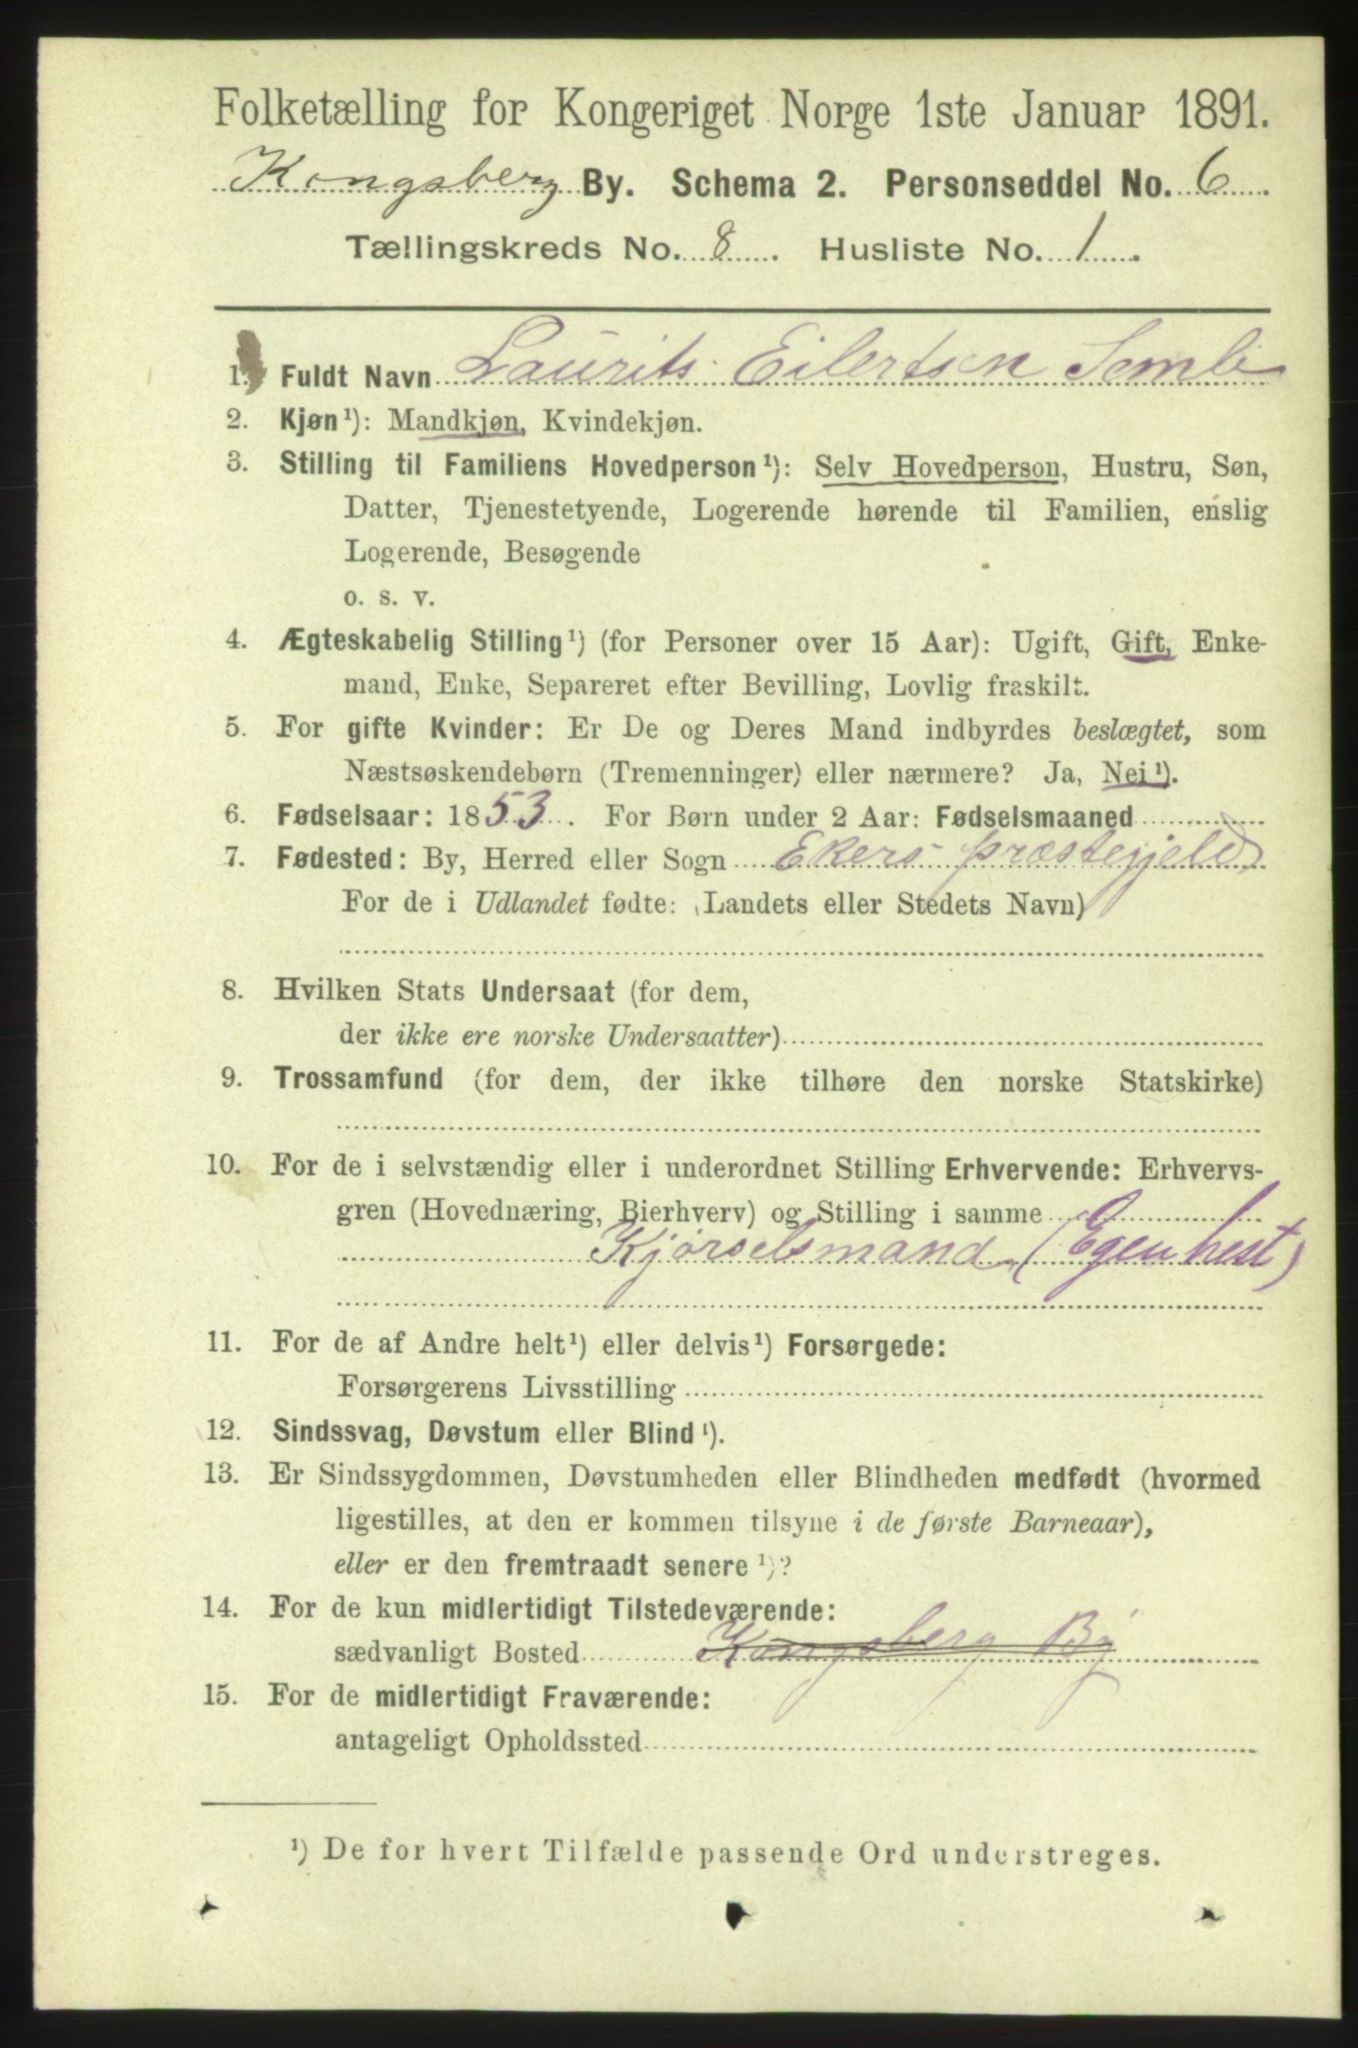 Folketælling for Kongeriget Norge 1ste Januar 1891.
Kongsberg By. Schema 2. Personseddel No. 6
Tællingskreds No. 8. Husliste No. 1.
1. Fuldt Navn Laurits Eilertsen Semb
2. Kjøn¹): Mandkjøn, Kvindekjøn.
3. Stilling til Familiens Hovedperson¹): Selv Hovedperson, Hustru, Søn,
Datter, Tjenestetyende, Logerende hørende til Familien, enslig
Logerende, Besøgende
o. s. v.
4. Ægteskabelig Stilling¹) (for Personer over 15 Aar): Ugift, Gift, Enke-
mand, Enke, Separeret efter Bevilling, Lovlig fraskilt.
5. For gifte Kvinder: Er De og Deres Mand indbyrdes beslægtet, som
Næstsøskendebørn (Tremenninger) eller nærmere? Ja, Nei¹).
6. Fødselsaar: 1853. For Børn under 2 Aar: Fødselsmaaned
7. Fødested: By, Herred eller Sogn Ekers præstegjeld
For de i Udlandet fødte: (Landets eller Stedets Navn)
8. Hvilken Stats Undersaat (for dem,
der ikke ere norske Undersaatter)
9. Trossamfund (for dem, der ikke tilhøre den norske Statskirke)
10. For de i selvstændig eller i underordnet Stilling Erhvervende: Erhvervs-
gren (Hovednæring, Bierhverv) og Stilling i samme
Kjørselsmand (Egen hest)
11. For de af Andre helt¹) eller delvis¹) Forsørgede:
Forsørgerens Livsstilling
12. Sindssvag, Døvstum eller Blind¹).
13. Er Sindssygdommen, Døvstumheden eller Blindheden medfødt (hvormed
ligestilles, at den er kommen tilsyne i de første Barneaar),
eller er den fremtraadt senere¹)?
14. For de kun midlertidigt Tilstedeværende:
sædvanligt Bosted Kongsberg By
15. For de midlertidigt Fraværende:
antageligt Opholdssted
¹) De for hvert Tilfælde passende Ord understreges.